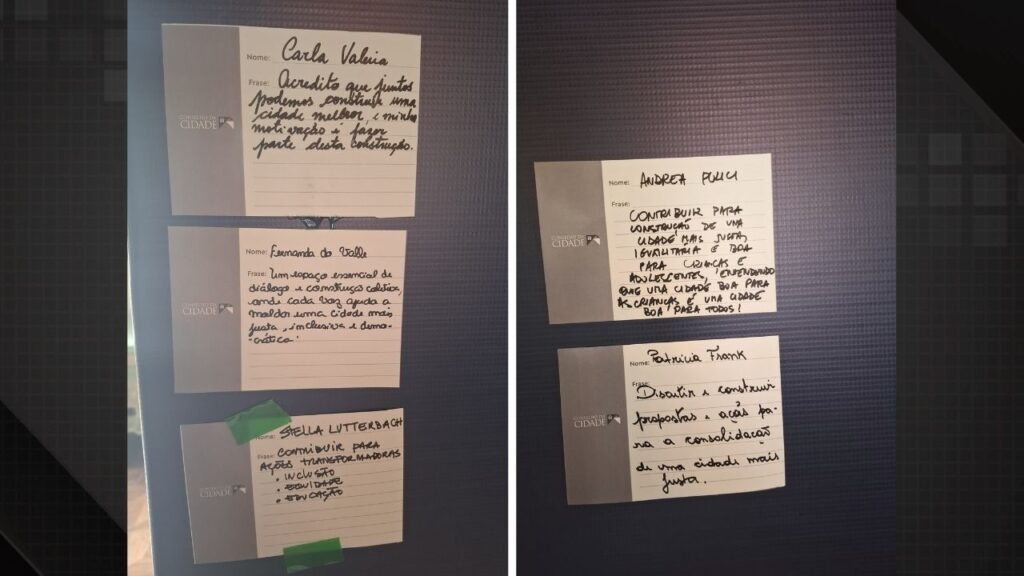 Nome: Carla Valeria
Frase: Acredito que juntos
podemos construir uma
cidade melhor, e minha
motivação é fazer
parte desta construção.
CONSELHO DA
CIDADE
Nome: Fernanda do Valle
Frase: Um espaço essencial de
diálogo e construção coletiva,
onde cada voz ajuda a
moldar uma cidade mais
justa, inclusiva e demo-
crática.
CONSELHO DA
CIDADE
Nome: STELLA LUTTERBACH
Frase: CONTRIBUIR PARA
AÇÕES TRANSFORMADORAS
• INCLUSÃO
• EQUIDADE
• EDUCAÇÃO
CONSELHO DA
CIDADE
Nome: ANDREA PULICI
Frase:
CONTRIBUIR PARA
CONSTRUÇÃO DE UMA
CIDADE MAIS JUSTA,
IGUALITARIA E BOA
PARA CRIANÇAS E
ADOLESCENTES, ENTENDENDO
QUE UMA CIDADE BOA PARA
AS CRIANÇAS É UMA CIDADE
BOA PARA TODOS!
CONSELHO DA
CIDADE
Nome: Patricia Frank
Frase:
Discutir e construir
propostas e ações pa-
ra a consolidação
de uma cidade mais
justa.
CONSELHO DA
CIDADE